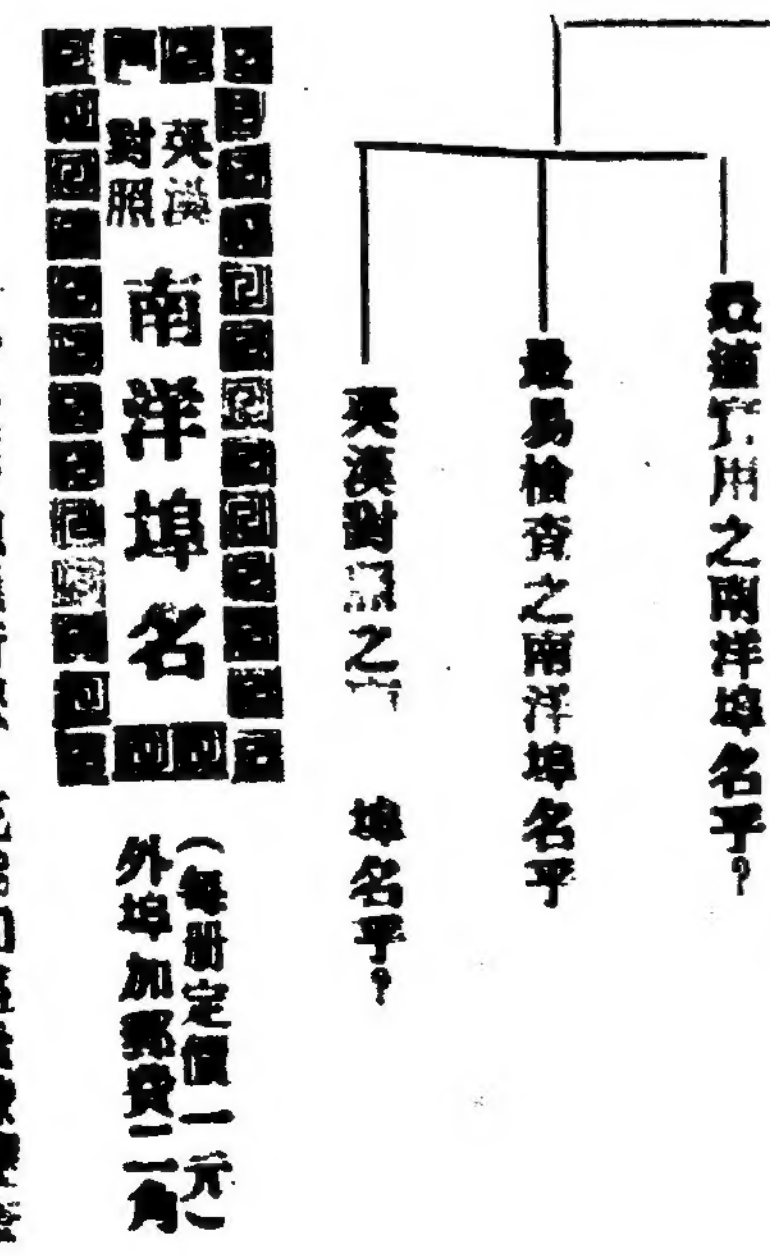 最適實用之南洋埠名乎?
最易檢查之南洋埠名乎
英漢對照之 埠名乎?
英漢
對照
南洋埠名
(每册定價一元)
外埠加郵費二角